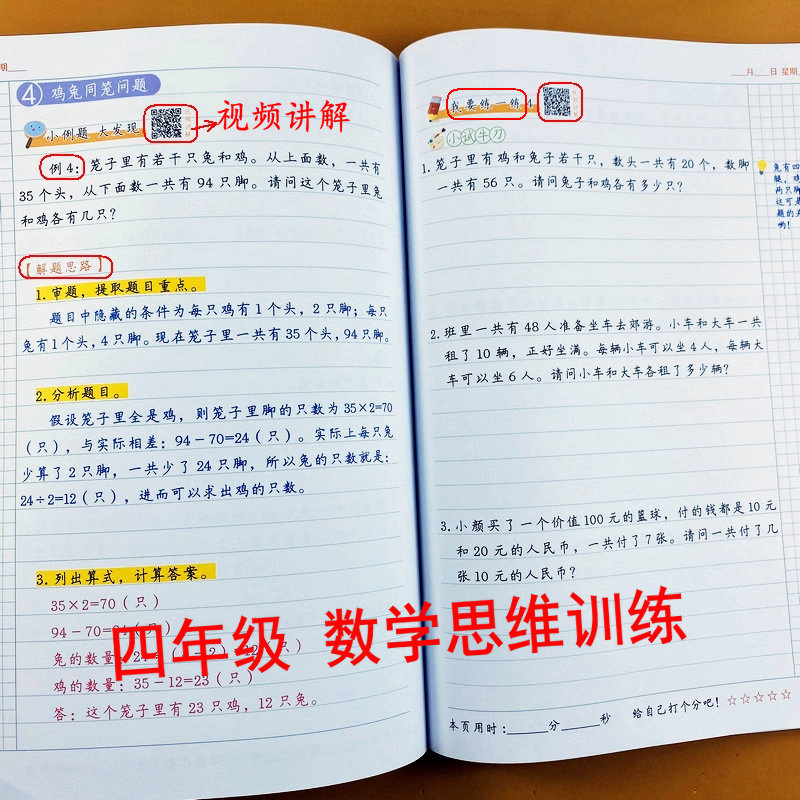 期
④ 鸡兔同笼问题
小例题 大发现
视频讲解
例 4：笼子里有若干只兔和鸡。从上面数，一共有
35 个头，从下面数一共有 94 只脚。请问这个笼子里兔
和鸡各有几只？
【解题思路】
1.审题，提取题目重点。
题目中隐藏的条件为每只鸡有1个头，2只脚；每只
兔有1个头，4只脚。现在笼子里一共有35个头，94只脚。
2.分析题目。
假设笼子里全是鸡，则笼子里脚的只数为 35×2=70
（只），与实际相差：94－70=24（只）。实际上每只兔
少算了2只脚，一共少了24只脚，所以兔的只数就是：
24÷2=12（只），进而可以求出鸡的只数。
3.列出算式，计算答案。
35×2=70（只）
94－70=24（只）
兔的数量：24÷
鸡的数量：35－12=23（只）
答：这个笼子里有 23 只鸡，12 只兔。
月 日 星期
我要练一练 4
小试牛刀
1.笼子里有鸡和兔子若干只，数头一共有20个，数脚
一共有56只。请问兔子和鸡各有多少只？
兔有四
腿，鸡
两只脚
这可是
题的关
哟！
2.班里一共有48人准备坐车去郊游。小车和大车一共
租了10辆，正好坐满。每辆小车可以坐4人，每辆大
车可以坐6人。请问小车和大车各租了多少辆？
3.小颜买了一个价值100元的篮球，付的钱都是10元
和20元的人民币，一共付了7张。请问一共付了几
张10元的人民币？
四年级 数学思维训练
本页用时：____分____秒 给自己打个分吧！☆☆☆☆☆